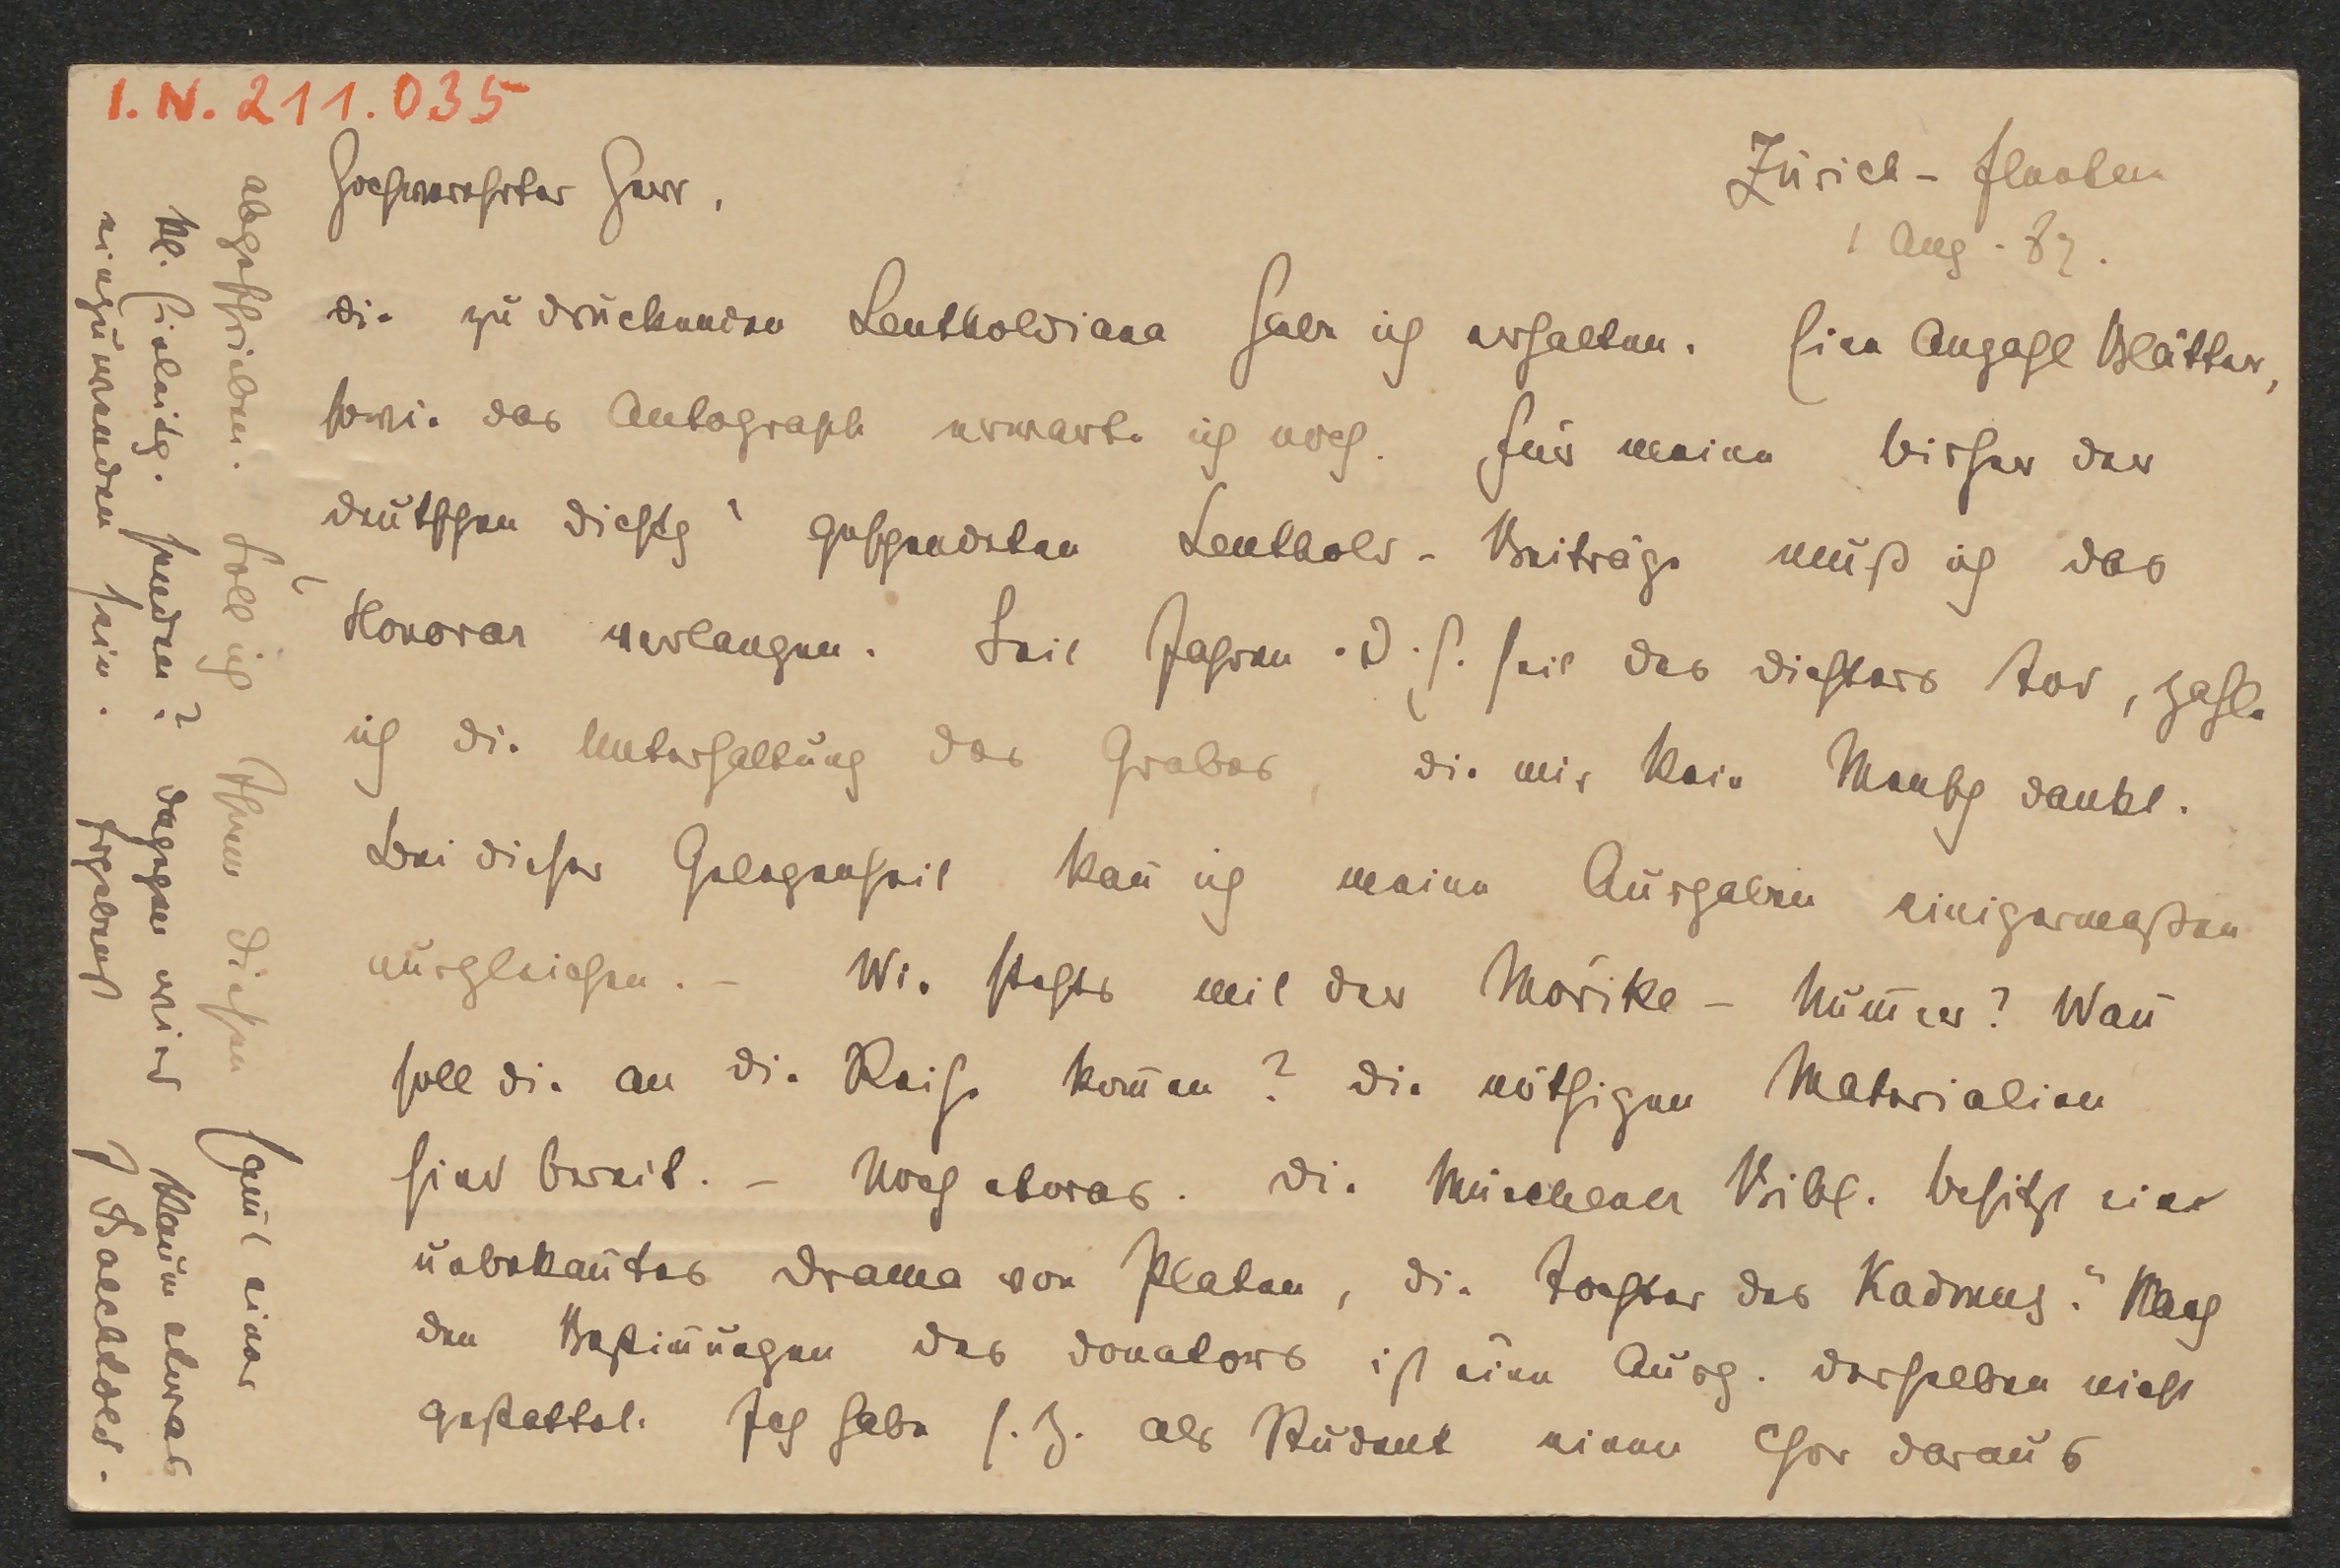 I.N. 211.035
Zürich - Fluntern
1 Aug. 87.
Hochverehrter Herr,
die zu druckenden Leutholdiana habe ich erhalten. Eine Anzahl Blätter,
sowie das Autograph erwarte ich noch. Für meine bisher der
„deutschen Dichtg“ gespendeten Leuthold-Beiträge muß ich das
Honorar verlangen. Seit Jahren d. h. seit des Dichters Tod, zahle
ich die Unterhaltung des Grabes, die mir kein Mensch dankt.
Bei dieser Gelegenheit kañ ich meine Ausgaben einigermaßen
ausgleichen. – Wie stehts mit der Mörike-Num̄er? Wañ
soll die an die Reihe kom̄en? Die nöthigen Materialien
sind bereit. – Noch etwas. Die Münchener Bibl. besitzt ein
unbekañtes Drama von Platen, die Tochter des Kadmus“. Nach
den Bestim̄ungen des Donators ist eine Ausg. desselben nicht
gestattet. Ich habe s. Z. als Student einen Chor daraus
abgeschrieben. Soll ich Ihnen diesen samt einer
kl. Einleitg. senden? Dagegen wird kaum etwas
einzuwenden sein. Ergebenst
J Baechtold.